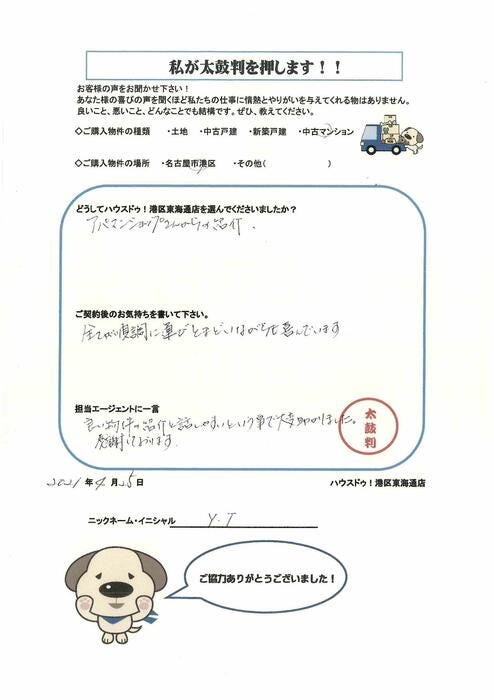 私が太鼓判を押します！！
お客様の声をお聞かせ下さい！
あなた様の喜びの声を聞くほど私たちの仕事に情熱とやりがいを与えてくれる物はありません。
良いこと、悪いこと、どんなことでも結構です。ぜひ、教えてください。
◇ご購入物件の種類　・土地　・中古戸建　・新築戸建　・中古マンション
◇ご購入物件の場所　・名古屋市港区　・その他(　　　　)
どうしてハウスドゥ！港区東海通店を選んでくださいましたか？
アパマンショップさんからの紹介．
ご契約後のお気持ちを書いて下さい。
全てが順調に運びとまどいながらも喜んでいます
担当エージェントに一言
良い物件の紹介と話しやすいという事で大変助かりました。
感謝しております．
太鼓判
2021年4月25日
ハウスドゥ！港区東海通店
ニックネーム・イニシャル　Y.T
ご協力ありがとうございました！